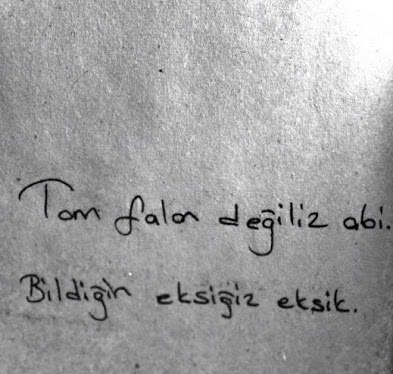 Tam falan değiliz abi.
Bildiğin eksiğiz eksik.